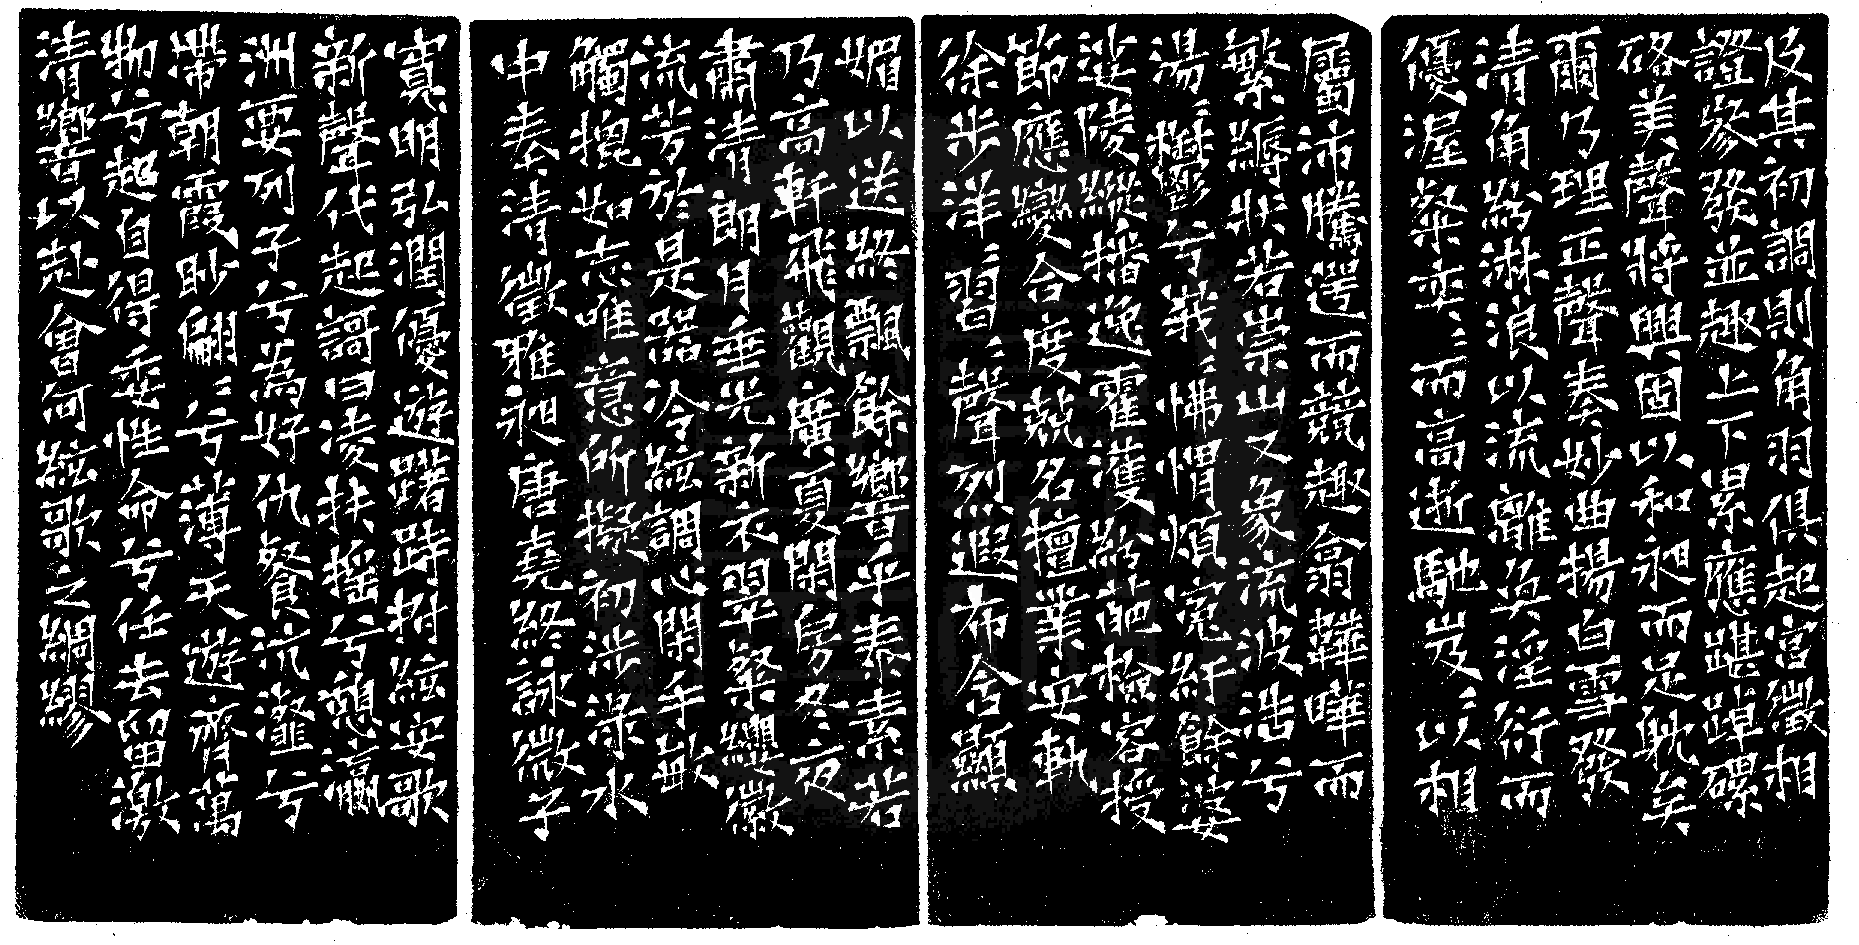 及其初調則角羽俱起宮徵相
證參發並趣上下累應踸踔磥
硌美聲將興固以和昶而足耽矣
爾乃理正聲奏妙曲揚白雪發
清角紛淋浪以流離奐淫衍而
優渥粲奕〻而高逝馳岌〻以相
屬沛騰遌而競趣翕韡曄而
繁縟狀若崇山又象流波浩兮
湯〻鬱兮峩〻怫㥜煩寃紆餘婆
娑陵縱播逸霍濩紛葩檢容授
節應變合度兢名擅業安軌
徐步洋〻習〻聲烈遐布含顯
媚以送終飄餘響乎泰素若
乃高軒飛觀廣夏閑房冬夜
肅清朗月垂光新衣翠粲纓徽
流芳於是器冷絃調心閑手敏
觸㧙如志唯意所擬初涉淥水
中奏清徵雅昶唐堯終詠微子
寬明弘潤優遊躇跱拊絃安歌
新聲代起謌曰凌扶搖兮憩瀛
洲要列子兮為好仇餐沆瀣兮
帶朝霞眇翩〻兮薄天遊齊萬
物兮超自得委性命兮任去留激
清響以赴會何絃歌之綢繆